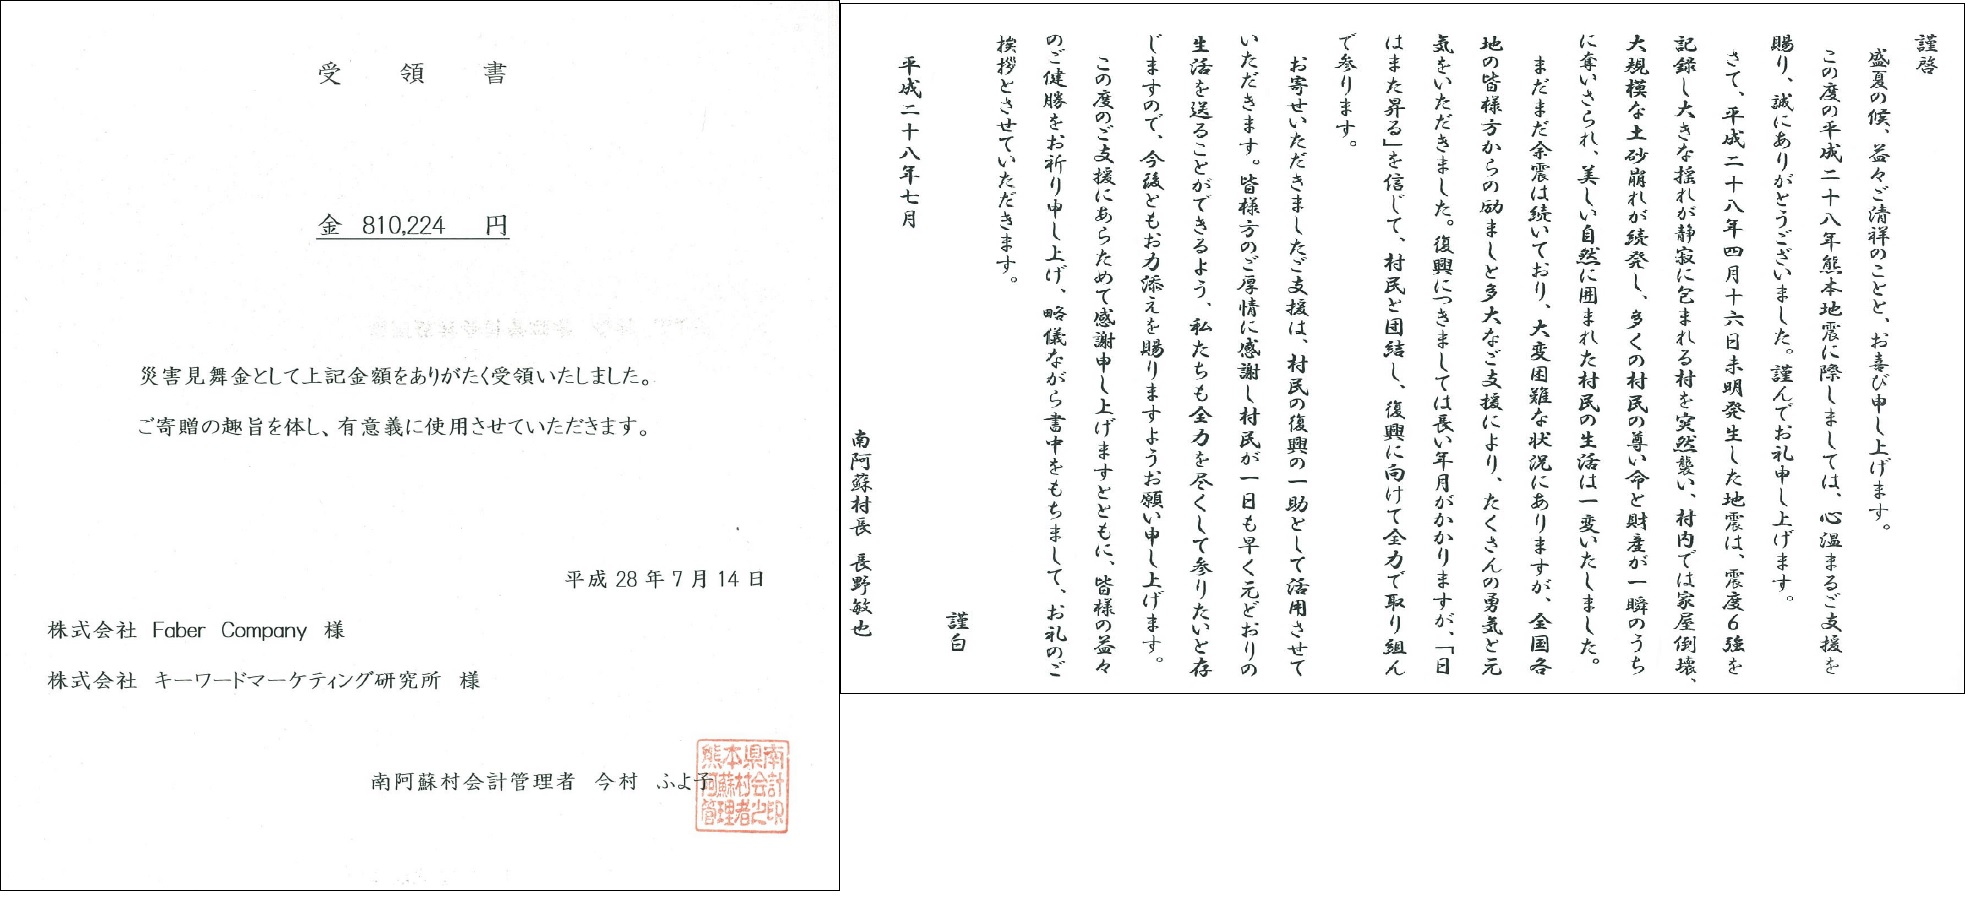 受 領 書
金 810,224 円
災害見舞金として上記金額をありがたく受領いたしました。
ご寄贈の趣旨を体し、有意義に使用させていただきます。
平成 28 年 7 月 14 日
株式会社 Faber Company 様
株式会社 キーワードマーケティング研究所 様
南阿蘇村会計管理者 今村 ふよ子
熊本県南
阿蘇村会計
管理者之印
謹啓
盛夏の候、益々ご清祥のことと、お喜び申し上げます。
この度の平成二十八年熊本地震に際しましては、心温まるご支援を
賜り、誠にありがとうございました。謹んでお礼申し上げます。
さて、平成二十八年四月十六日未明発生した地震は、震度6強を
記録し大きな揺れが静寂に包まれる村を突然襲い、村内では家屋倒壊、
大規模な土砂崩れが続発し、多くの村民の尊い命と財産が一瞬のうち
に奪いさられ、美しい自然に囲まれた村民の生活は一変いたしました。
まだまだ余震は続いており、大変困難な状況にありますが、全国各
地の皆様方からの励ましと多大なご支援により、たくさんの勇気と元
気をいただきました。復興につきましては長い年月がかかりますが、「日
はまた昇る」を信じて、村民と団結し、復興に向けて全力で取り組ん
で参ります。
お寄せいただきましたご支援は、村民の復興の一助として活用させて
いただきます。皆様方のご厚情に感謝し村民が一日も早く元どおりの
生活を送ることができるよう、私たちも全力を尽くして参りたいと存
じますので、今後ともお力添えを賜りますようお願い申し上げます。
この度のご支援にあらためて感謝申し上げますとともに、皆様の益々
のご健勝をお祈り申し上げ、略儀ながら書中をもちまして、お礼のご
挨拶とさせていただきます。
謹白
平成二十八年七月
南阿蘇村長 長野敏也